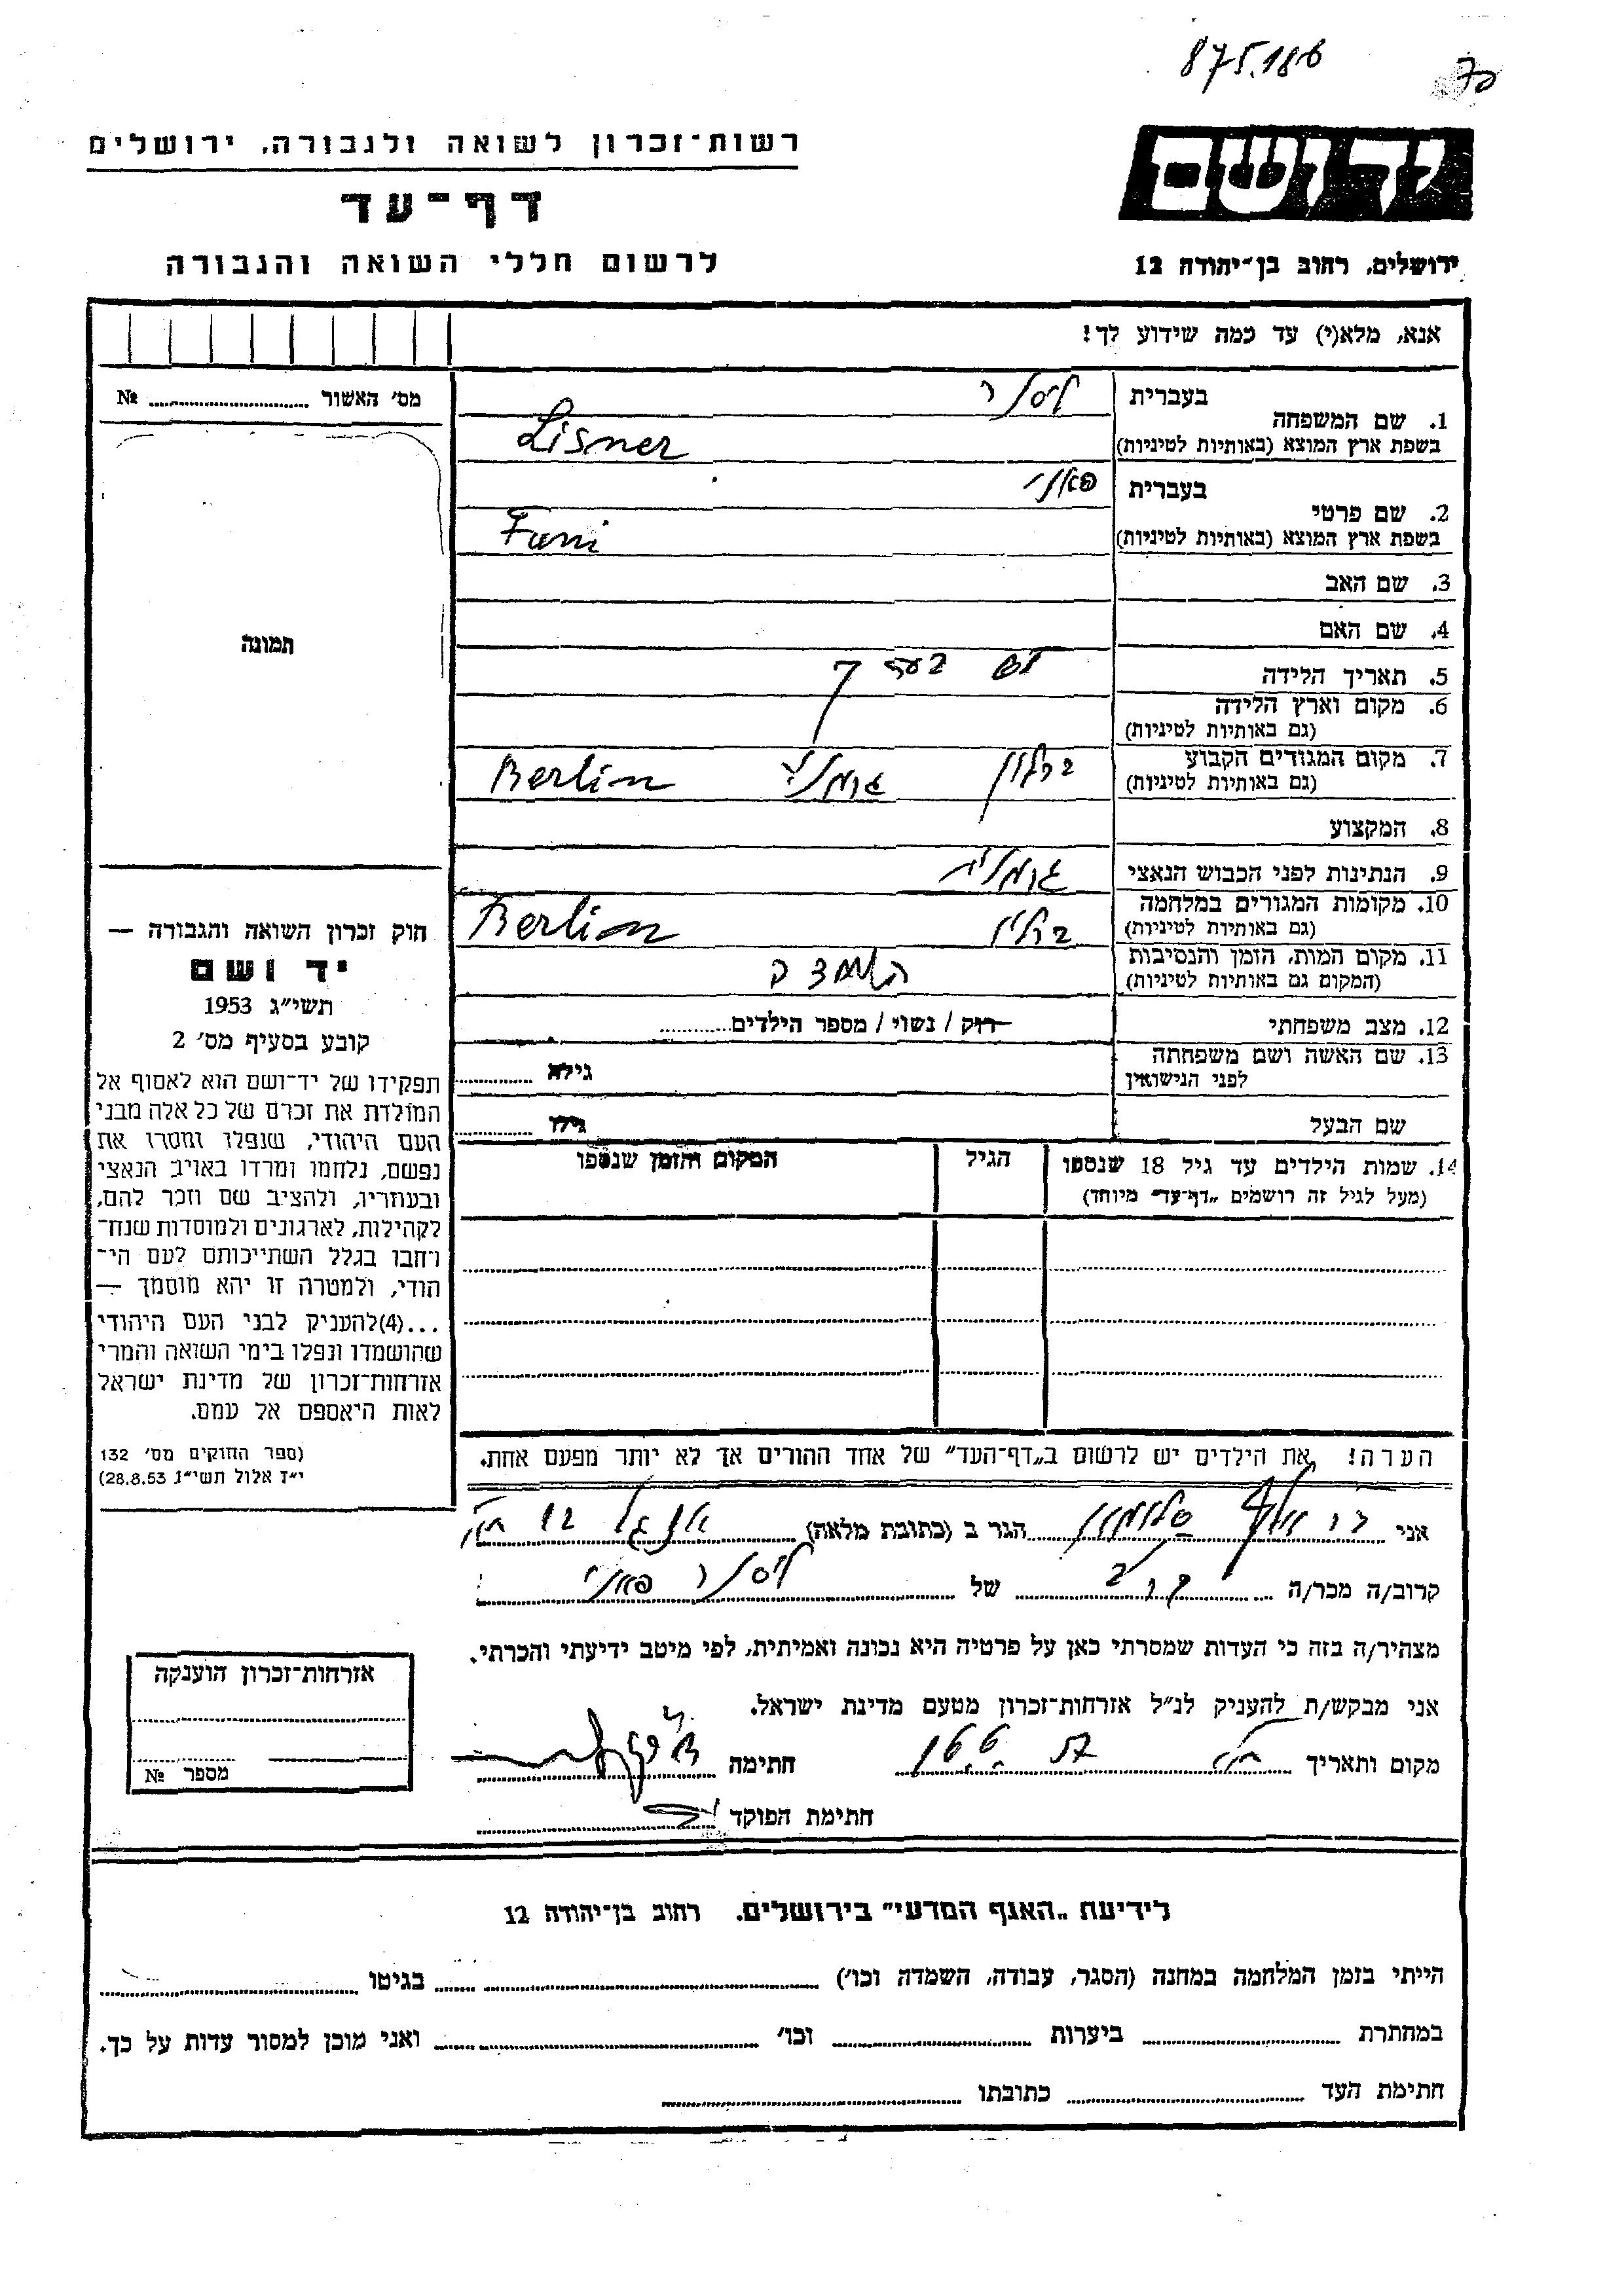 875.186
רשות־זכרון לשואה ולגבורה, ירושלים
דף־עד
לרשום חללי השואה והגבורה
יד ושם
ירושלים, רחוב בן־יהודה 12
אנא, מלא(י) עד כמה שידוע לך!
מס׳ האשור № 
1. שם המשפחה
בעברית ליסנר
בשפת ארץ המוצא (באותיות לטיניות) Lisner
2. שם פרטי
בעברית פאני
בשפת ארץ המוצא (באותיות לטיניות) Fani
3. שם האב
4. שם האם
5. תאריך הלידה
6. מקום וארץ הלידה
(גם באותיות לטיניות)
7. מקום המגורים הקבוע ברלין גרמניה Berlin
(גם באותיות לטיניות)
8. המקצוע
9. הנתינות לפני הכבוש הנאצי גרמנית
10. מקומות המגורים במלחמה ברלין Berlin
(גם באותיות לטיניות)
11. מקום המות, הזמן והנסיבות
(המקום גם באותיות לטיניות)
12. מצב משפחתי רוק / נשוי / מספר הילדים
13. שם האשה ושם משפחתה
לפני הנישואין גילה
שם הבעל גילו
14. שמות הילדים עד גיל 18 שנספו הגיל המקום והזמן שנספו
(מעל לגיל זה רושמים „דף־עד״ מיוחד)
הערה! את הילדים יש לרשום ב„דף־העד״ של אחד ההורים אך לא יותר מפעם אחת.
תמונה
חוק זכרון השואה והגבורה —
יד ושם
תשי״ג 1953
קובע בסעיף מס׳ 2
תפקידו של יד־ושם הוא לאסוף אל
המולדת את זכרם של כל אלה מבני
העם היהודי, שנפלו ומסרו את
נפשם, נלחמו ומרדו באויב הנאצי
ובעוזריו, ולהציב שם וזכר להם,
לקהילות, לארגונים ולמוסדות שנח־
רחבו בגלל השתייכותם לעם הי־
הודי, ולמטרה זו יהא מוסמך —
...(4)להעניק לבני העם היהודי
שהושמדו ונפלו בימי השואה והמרי
אזרחות־זכרון של מדינת ישראל
לאות היאספם אל עמם.
(ספר החוקים מס׳ 132
י״ז אלול תשי״ג 28.8.53)
אני סלומון הגר ב (כתובת מלאה)
קרוב/ה מכר/ה קרוב של ליסנר פאני
מצהיר/ה בזה כי העדות שמסרתי כאן על פרטיה היא נכונה ואמיתית, לפי מיטב ידיעתי והכרתי.
אני מבקש/ת להעניק לנ״ל אזרחות־זכרון מטעם מדינת ישראל.
מקום ותאריך חתימה
חתימת הפוקד
אזרחות־זכרון הוענקה
מספר №
לידיעת „האגף המדעי״ בירושלים. רחוב בן־יהודה 12
הייתי בזמן המלחמה במחנה (הסגר, עבודה, השמדה וכו׳) בגיטו
במחתרת ביערות וכו׳ ואני מוכן למסור עדות על כך.
חתימת העד כתובתו